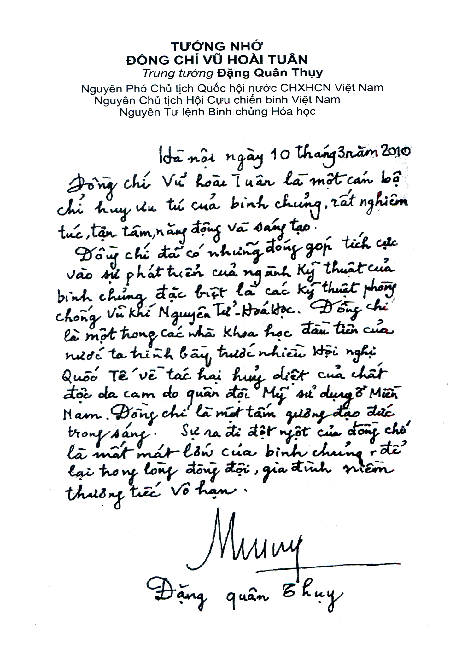 TƯỚNG NHỚ
ĐỒNG CHÍ VŨ HOÀI TUÂN
Trung tướng Đặng Quân Thụy
Nguyên Phó Chủ tịch Quốc hội nước CHXHCN Việt Nam
Nguyên Chủ tịch Hội Cựu chiến binh Việt Nam
Nguyên Tư lệnh Binh chủng Hóa học
Hà nội ngày 10 tháng 3 năm 2010
Đồng chí Vũ hoài Tuân là một cán bộ
chỉ huy ưu tú của binh chủng, rất nghiêm
túc, tận tâm, năng động và sáng tạo.
Đồng chí đã có những đóng góp tích cực
vào sự phát triển của ngành Kỹ thuật của
binh chủng đặc biệt là các Kỹ thuật phòng
chống Vũ khí Nguyên Tử - Hoá Học. Đồng chí
là một trong các nhà khoa học đầu tiên của
nước ta trình bày trước nhiều Hội nghị
Quốc Tế về tác hại huỷ diệt của chất
độc da cam do quân đội Mỹ sử dụng ở Miền
Nam. Đồng chí là một tấm gương đạo đức
trong sáng. Sự ra đi đột ngột của đồng chí
là mất mát lớn của binh chủng, để
lại trong lòng đồng đội, gia đình niềm
thương tiếc vô hạn.
Đặng quân Thụy